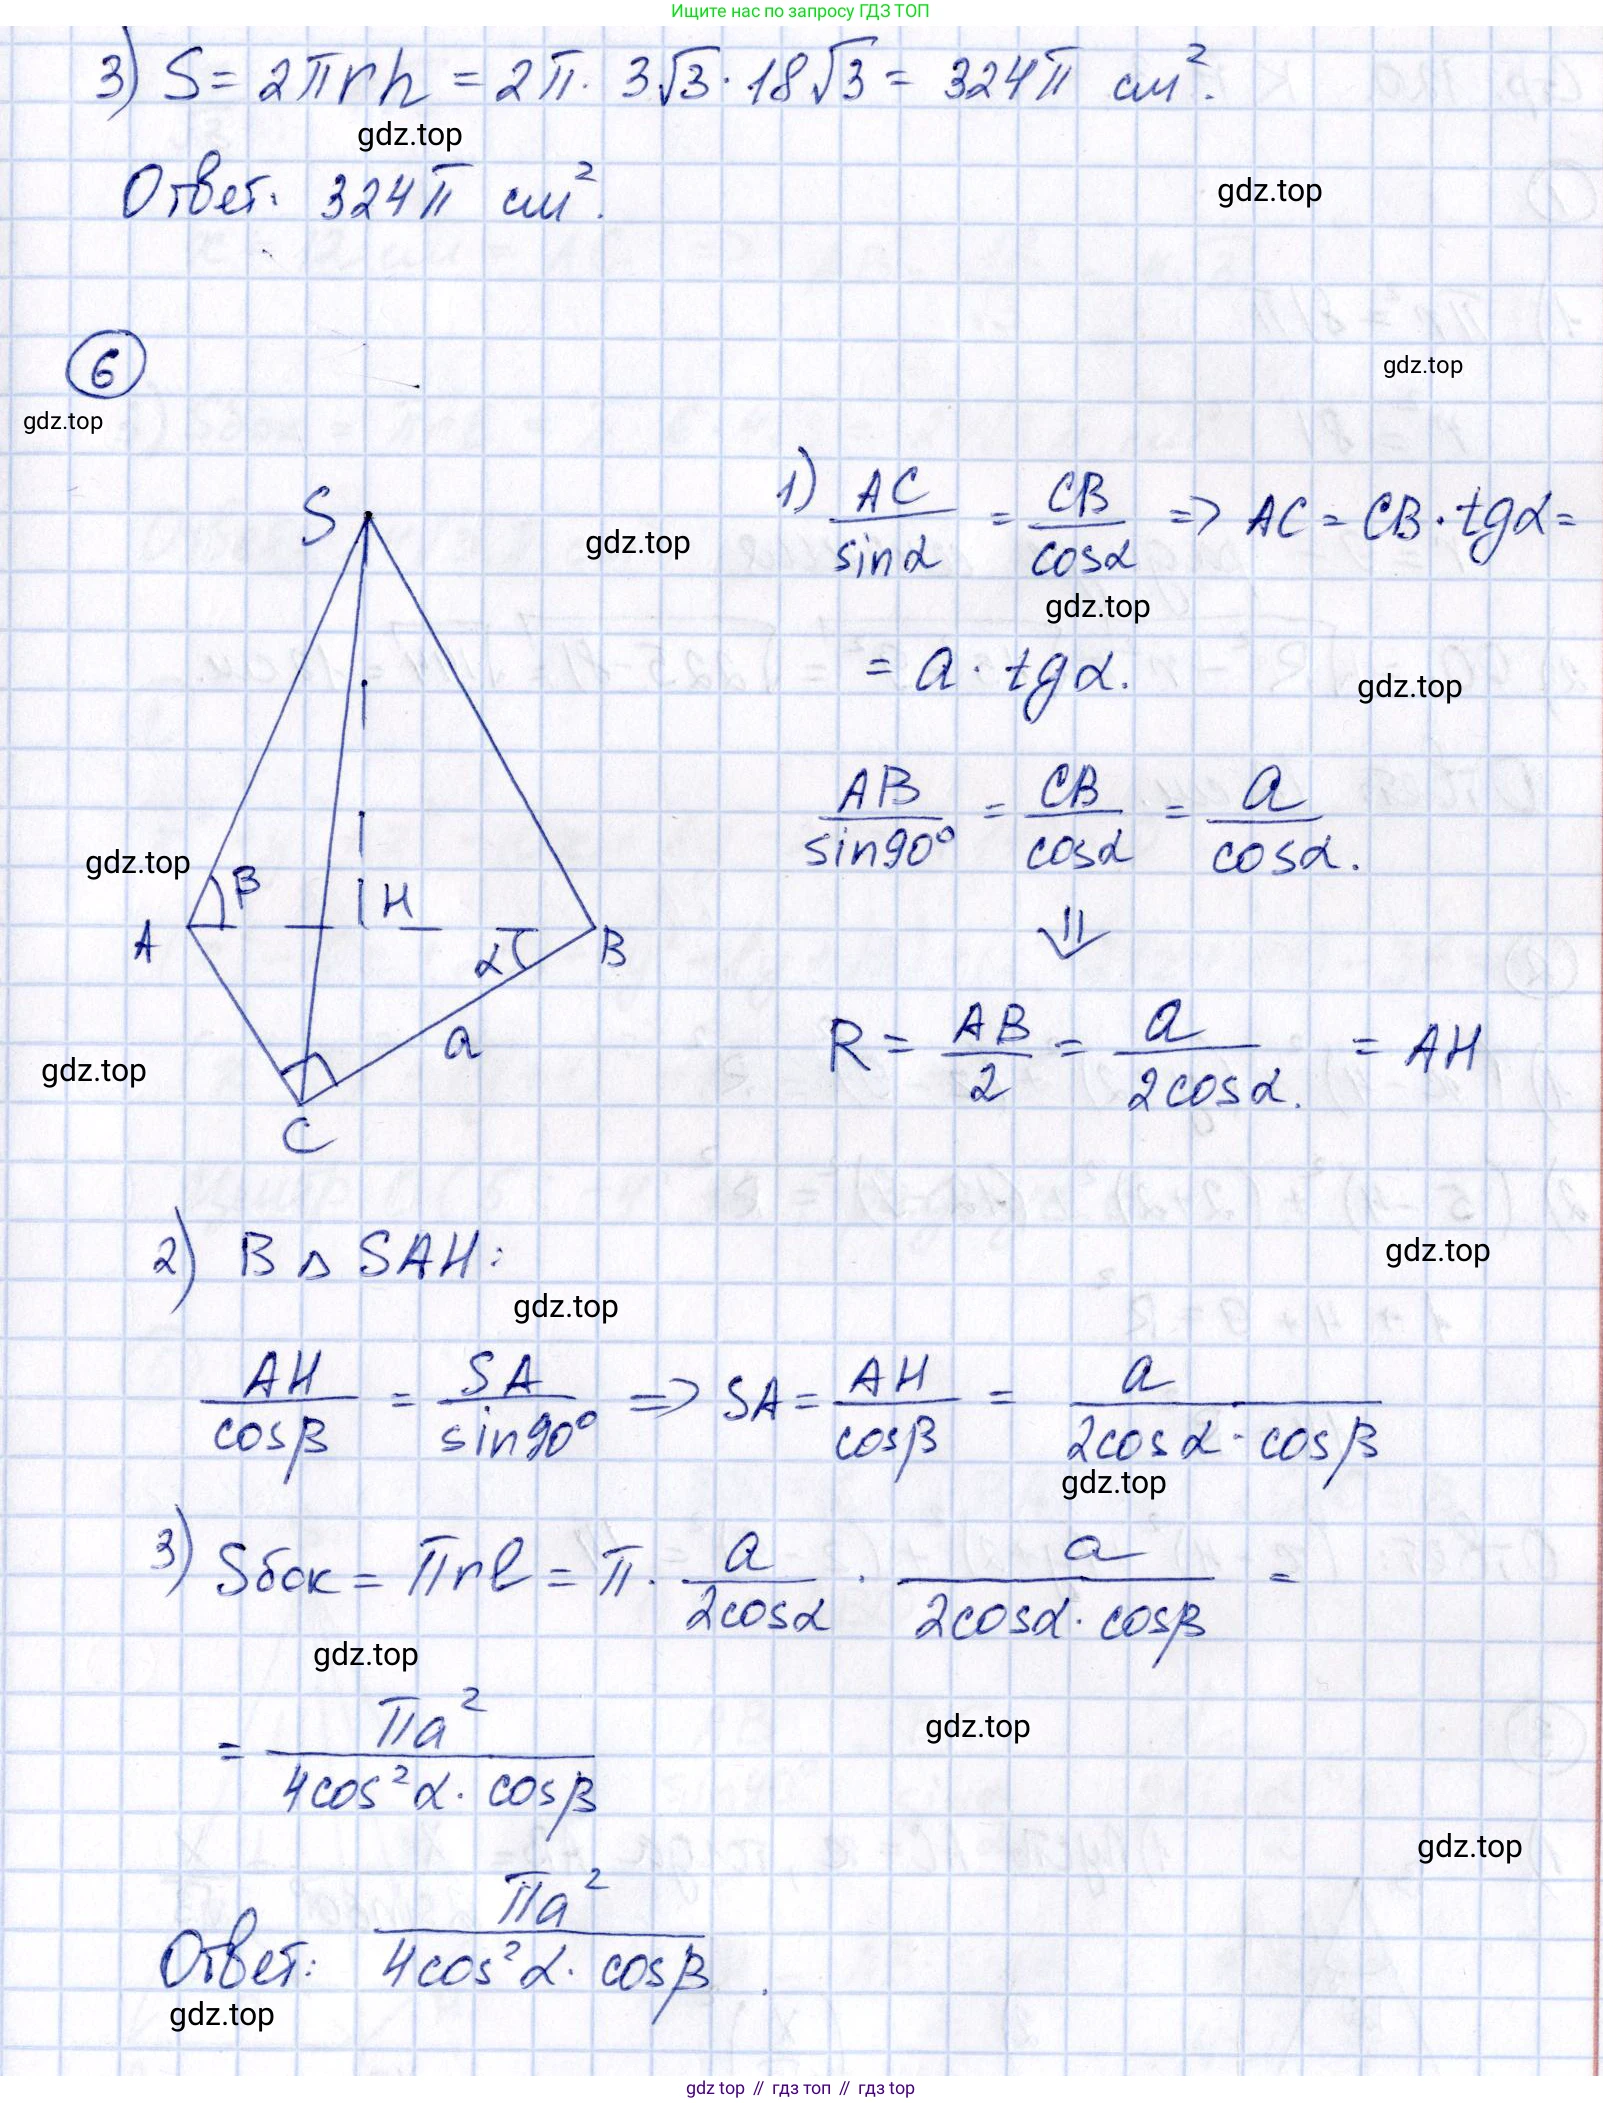 Ищите нас по запросу ГДЗ ТОП
3) S = 2πrh = 2π · 3√3 · 18√3 = 324π см².
gdz.top
Ответ: 324π см².
gdz.top
6
gdz.top
gdz.top
1) AC/sinα = CB/cosα => AC = CB · tgα =
S
gdz.top
gdz.top
= a · tgα.
gdz.top
AB/sin90° = CB/cosα = a/cosα.
gdz.top
β
H
A
α
B
a
R = AB/2 = a/2cosα. = AH
gdz.top
C
2) В △ SAH:
gdz.top
gdz.top
AH/cosβ = SA/sin90° => SA = AH/cosβ = a/2cosα · cosβ
gdz.top
3) Sбок = πrl = π · a/2cosα · a/2cosα · cosβ =
gdz.top
= πa²/4cos²α · cosβ
gdz.top
gdz.top
Ответ: πa²/4cos²α · cosβ.
gdz.top
gdz top // гдз топ // gdz top